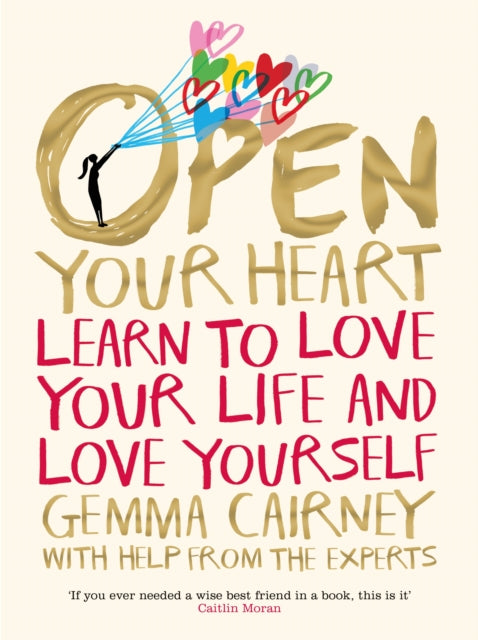 OPEN
YOUR HEART
LEARN TO LOVE
YOUR LIFE AND
LOVE YOURSELF
GEMMA CAIRNEY
WITH HELP FROM THE EXPERTS
'If you ever needed a wise best friend in a book, this is it'
Caitlin Moran